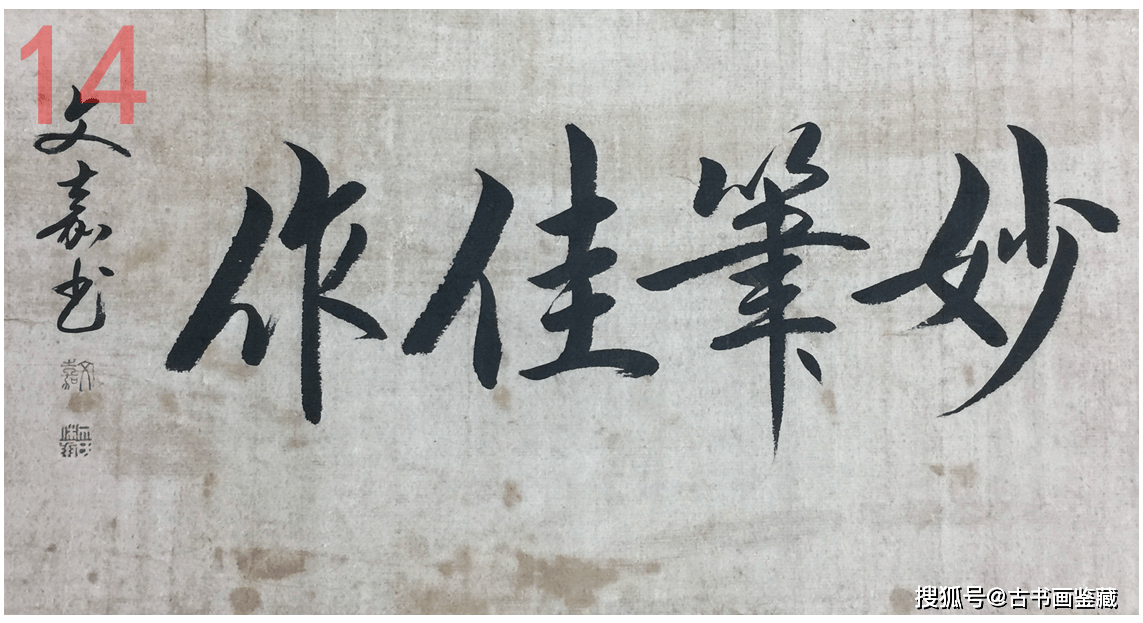 14
妙筆佳作
文嘉书
文嘉
搜狐号@古书画鉴藏